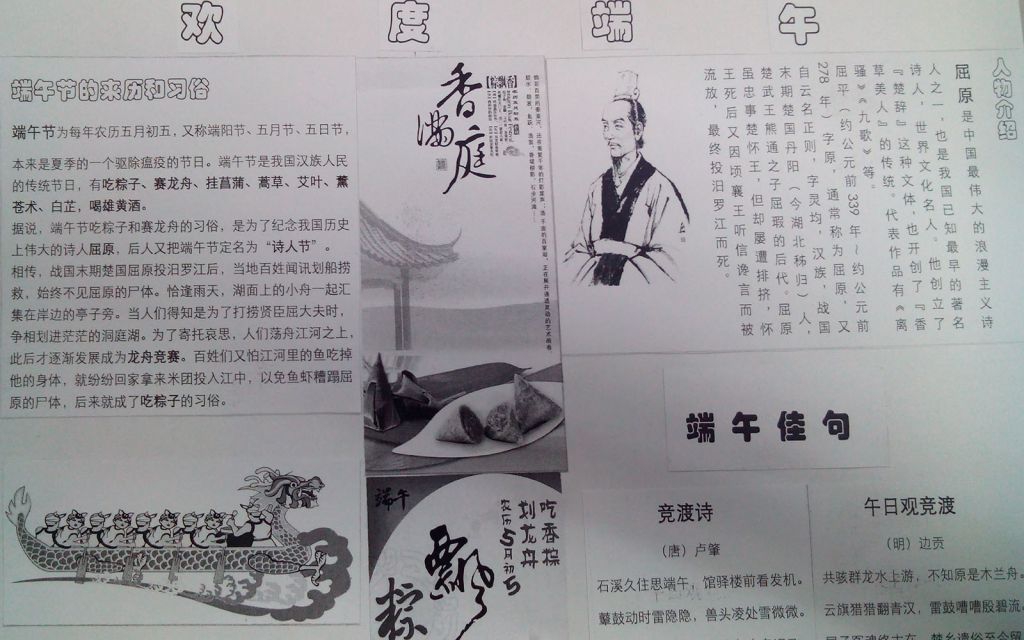 欢度端午
端午节的来历和习俗
端午节为每年农历五月初五，又称端阳节、五月节、五日节，
本来是夏季的一个驱除瘟疫的节日。端午节是我国汉族人民
的传统节日，有吃粽子、赛龙舟、挂菖蒲、蒿草、艾叶、薰
苍术、白芷，喝雄黄酒。
据说，端午节吃粽子和赛龙舟的习俗，是为了纪念我国历史
上伟大的诗人屈原，后人又把端午节定名为“诗人节”。
相传，战国末期楚国屈原投汨罗江后，当地百姓闻讯划船捞
救，始终不见屈原的尸体。恰逢雨天，湖面上的小舟一起汇
集在岸边的亭子旁。当人们得知是为了打捞贤臣屈大夫时，
争相划进茫茫的洞庭湖。为了寄托哀思，人们荡舟江河之上，
此后才逐渐发展成为龙舟竞赛。百姓们又怕江河里的鱼吃掉
他的身体，就纷纷回家拿来米团投入江中，以免鱼虾糟蹋屈
原的尸体，后来就成了吃粽子的习俗。
香满庭
人物介绍
屈原是中国最伟大的浪漫主义诗
人之一，也是我国已知最早的著名
诗人，世界文化名人。他创立了
『楚辞』这种文体，也开创了『香
草美人』的传统。代表作品有《离
骚》《九歌》等。
屈平（约公元前339年～约公元前
278年）字原，通常称为屈原，又
自云名正则，字灵均，汉族，战国
末期楚国丹阳（今湖北秭归）人，
楚武王熊通之子屈瑕的后代。屈原
虽忠事楚怀王，但却屡遭排挤，怀
王死后又因顷襄王听信谗言而被
流放，最终投汨罗江而死。
端午
吃香粽
划龙舟
农历5月初5
飘
粽
端午佳句
竞渡诗
（唐）卢肇
石溪久住思端午，馆驿楼前看发机。
鼙鼓动时雷隐隐，兽头凌处雪微微。
午日观竞渡
（明）边贡
共骇群龙水上游，不知原是木兰舟。
云旗猎猎翻青汉，雷鼓嘈嘈殷碧流。